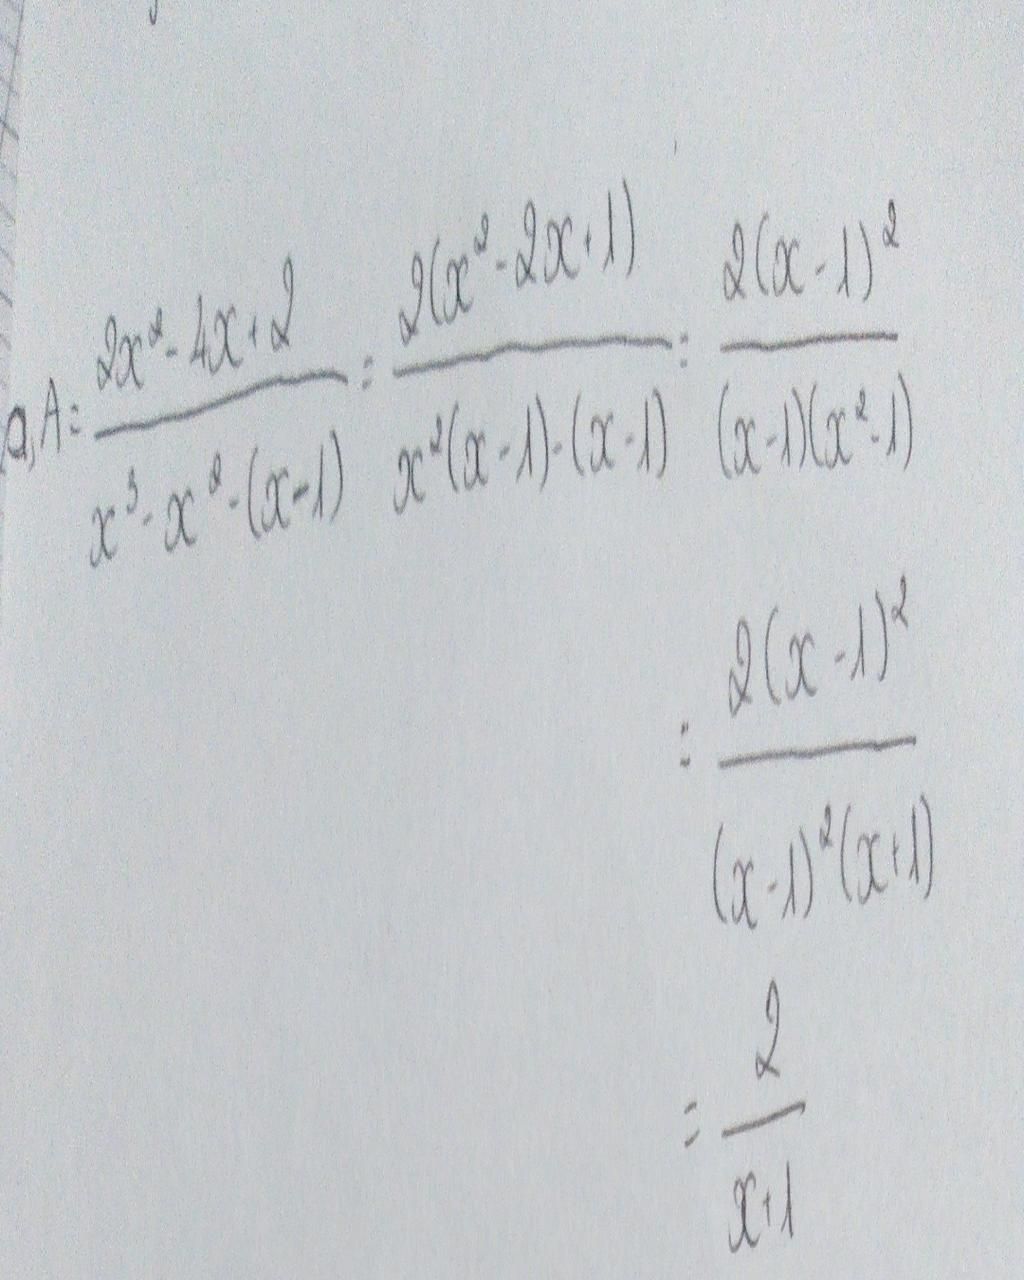 a, A = (2x² - 4x + 2)/(x³ - x² - (x - 1)) = (2(x² - 2x + 1))/(x²(x - 1) - (x - 1)) = (2(x - 1)²)/((x - 1)(x² - 1))
= (2(x - 1)²)/((x - 1)²(x + 1))
= 2/(x + 1)